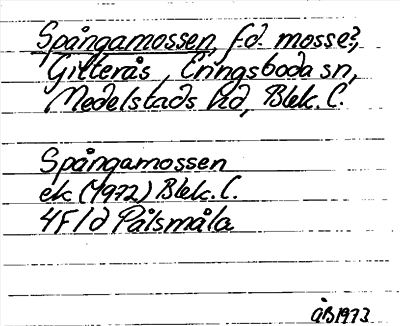 Spångamossen, f.d. mosse?,
Gilterås, Eringsboda sn,
Medelstads hd, Blek. l.
Spångamossen
ek (1972) Blek. l.
4F 1d Pålsmåla
ÅB 1973